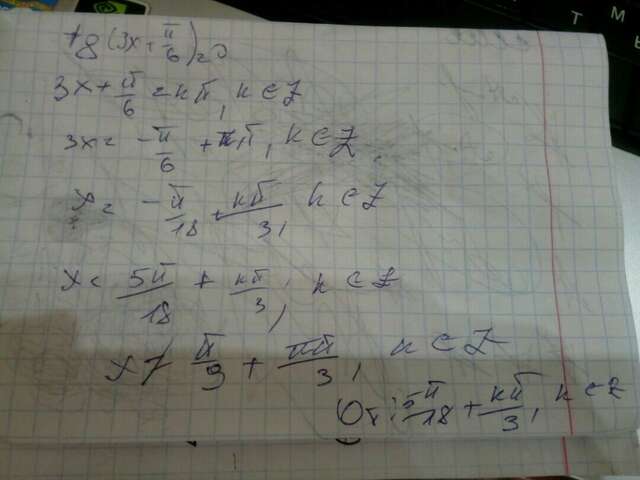 Т М
tg(3x+π/6)=0
3x+π/6=kπ, k∈Z
3x=-π/6+kπ, k∈Z
x=-π/18+kπ/3, k∈Z
x=5π/18+kπ/3, k∈Z
x≠π/9+πn/3, n∈Z
От: 5π/18+kπ/3, k∈Z